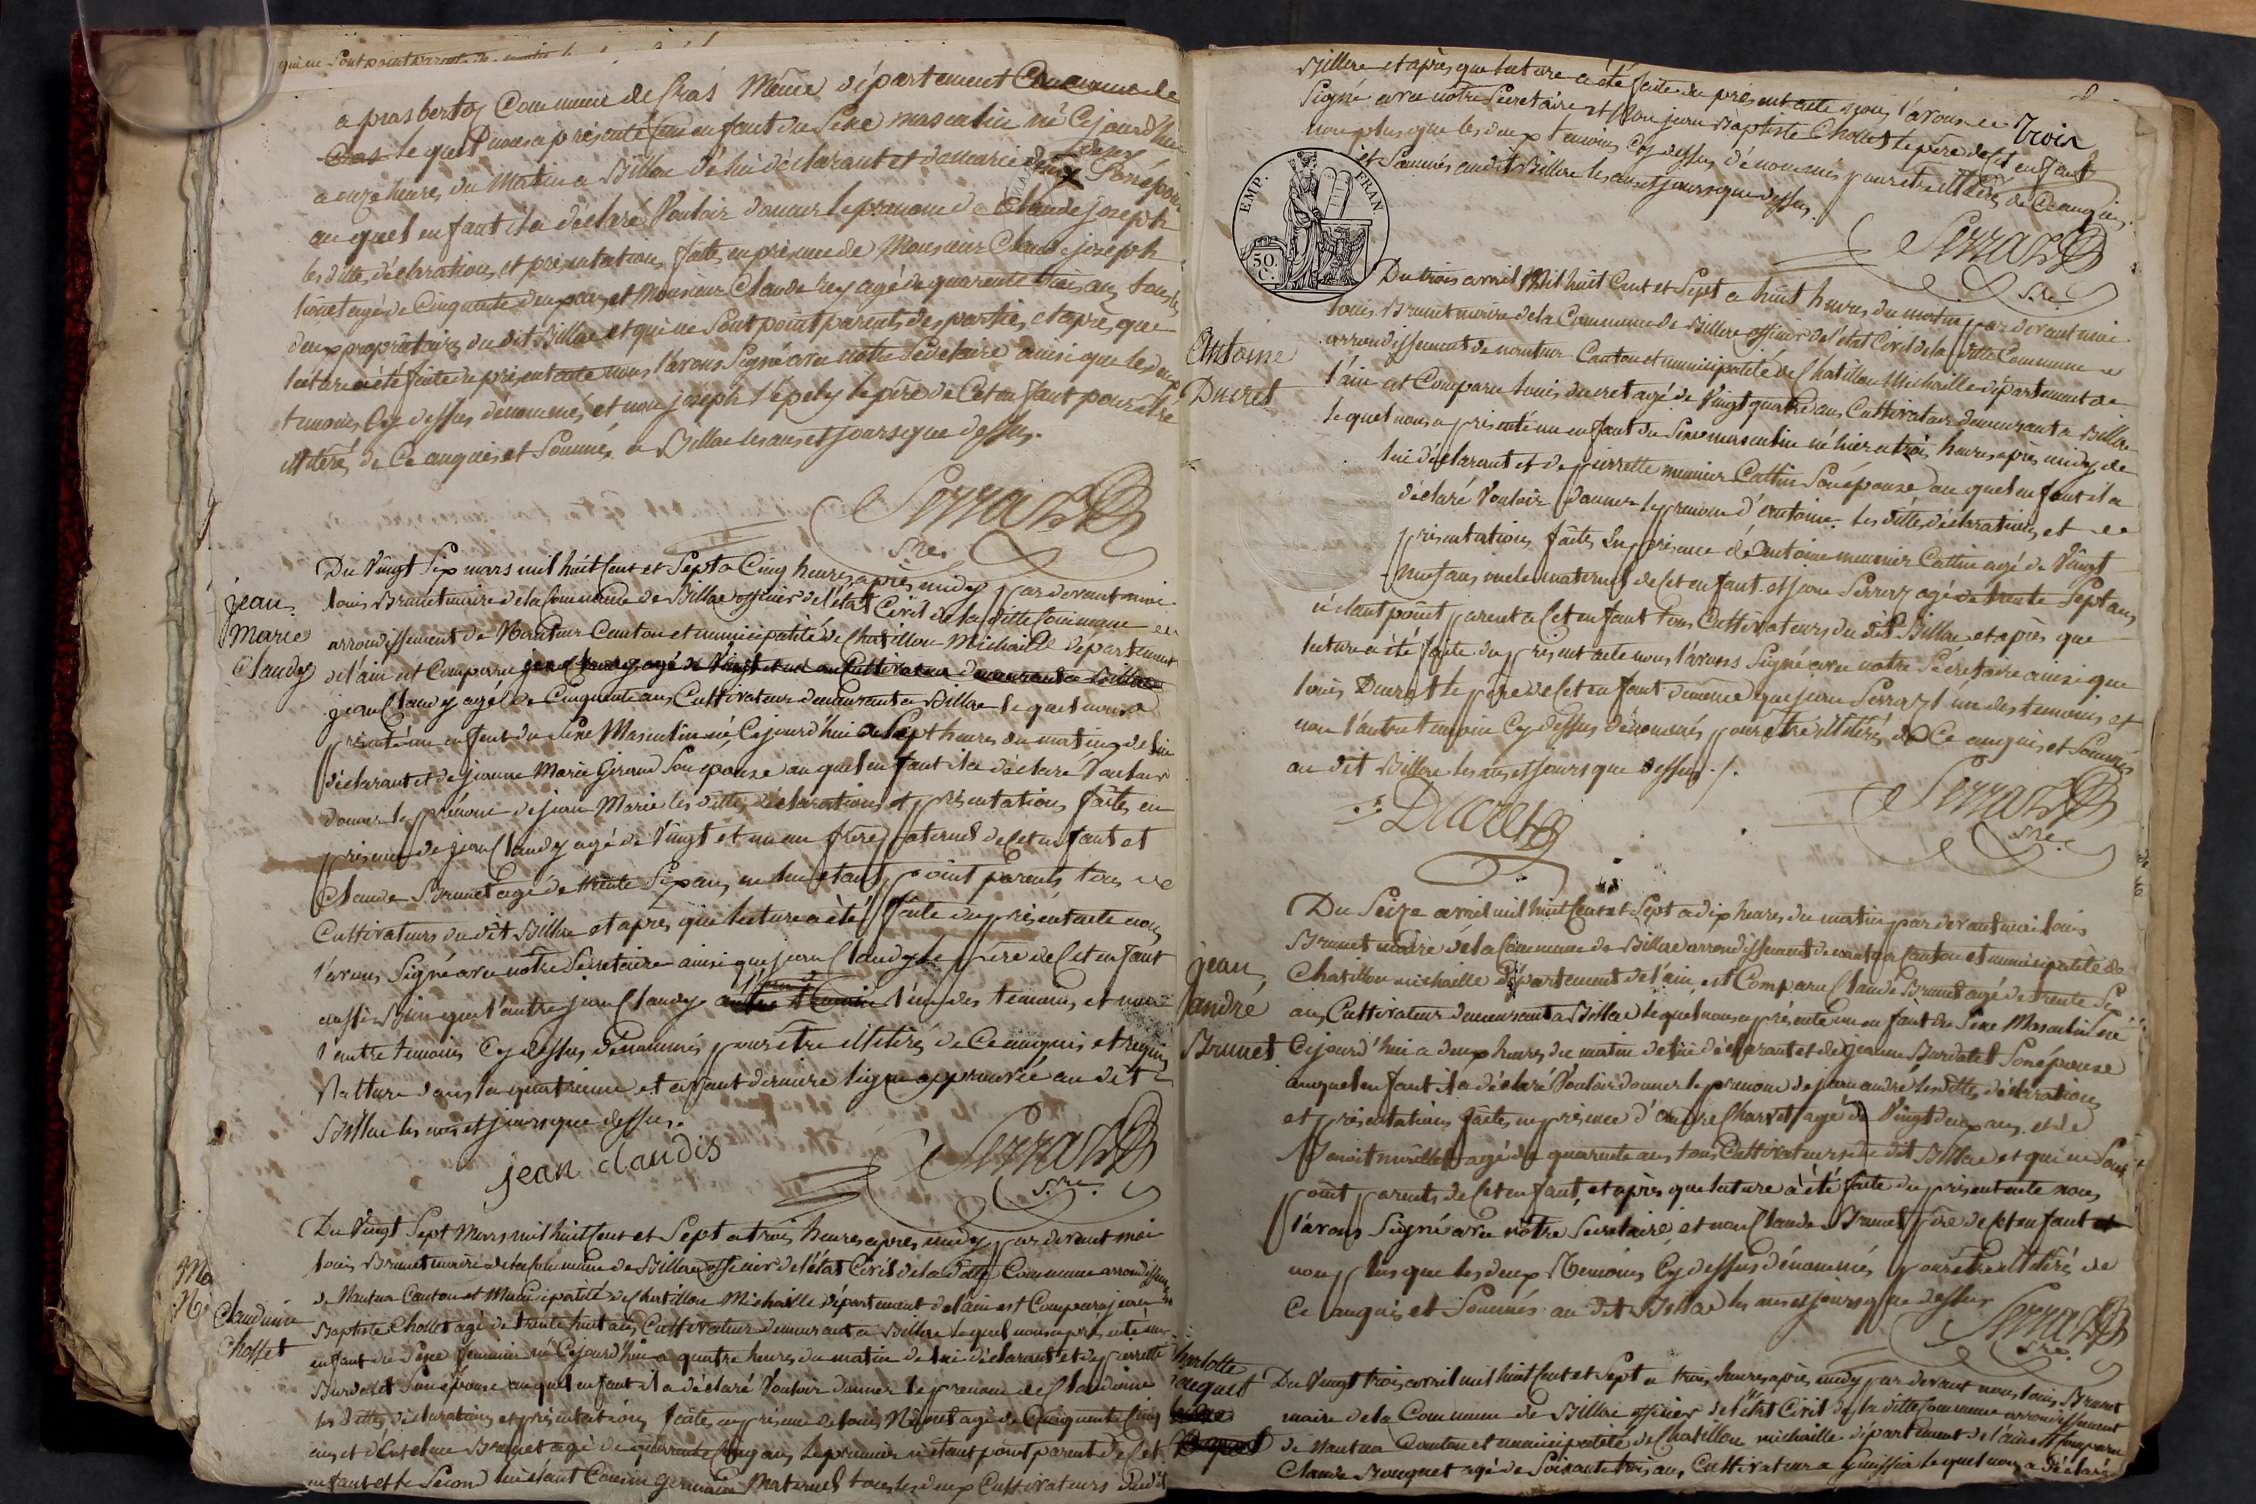 a prasberton Commune de Cras Même département Commune de
Cras le quel nous a présenté un enfant du Sexe masculin né Cejourd'hui
a onze heures du Matin a Billiae de lui déclarant et de marie Sonépouse
au quel enfant il a déclaré Vouloir donner le prenom de Claude joseph
les dittes déclarations et présentations faites en présence de Monsieur Claude joseph
agé de Cinquante deux ans et Monsieur Claude Rey agé de quarente trois ans tous les
deux propriétaires du dit Billiae et qui ne Sont point parents des parties et après que
lecture a été faite du présent acte nous l'avons Signé avec notre Secretaire ainsi que les deux
temoins Cy dessus denommés et non joseph le père de Cet enfant pour etre
illitéré de Ce anquis et Sommé a Billiae les ans et jours que dessus.
Serraz
S.re
jean
Marie
Claudy
Du Vingt Six mars mil huit Cent et Sept a Cinq heures après midy par devant moi
louis Brunet maire de la Commune de Billiae officier de l'état Civil de la ditte Commune
arrondissement de Nantua Canton et municipalité de Chatillon Michaille département
de l'ain est Comparu jean Claudy agé de Vingt et un an Cultivateur demeurant a Billiae
jean Claudy agé de Cinquente ans Cultivateur demeurant a Billiae le quel nous a
présenté un enfant du Sexe Masculin né Cejourd'hui a Sept heures du matin de lui
déclarant et de jeanne Marie Giraud Son epouse au quel enfant il a déclaré Vouloir
donner le prénom de jean Marie les dittes déclarations et présentations faites en
présence de jean Claudy agé de Vingt et un an frère paternel de Cet enfant et
Claude Brunet agé de trente Six ans ne lui etant point parents tous
Cultivateurs du dit Billiae et après que lecture a été faite du présent acte nous
l'avons Signé avec notre Secretaire ainsi que jean Claudy le père de Cet enfant
aussi bien que l'autre jean Claudy l'un des temoins et non
l'autre temoin Cy dessus dénommé pour être illitéré de Ce anquis et requis
Rature dans la quatrieme et avant derniere ligne approuvée au dit
Billiae les ans et jours que dessus.
jean claudis
Serraz
S.re
Claudinne
Chosset
Du Vingt Sept Mars mil huit Cent et Sept a trois heures après midy par devant moi
louis Brunet maire de la Commune de Billiae officier de l'état Civil de la ditte Commune arrondissement
de Nantua Canton et Municipalité de Chatillon Michaille département de l'ain est Comparu jean
Baptiste Chosset agé de trente huit ans Cultivateur demeurant a Billiae le quel nous a présenté un
enfant du Sexe feminin né Cejourd'hui a quatre heures du matin de lui déclarant et de pierrette
Burdalet Son épouse au quel enfant il a déclaré Vouloir donner le prenom de Claudinne
les dittes déclarations et présentations faites en présence de louis agé de Cinquente Cinq
ans et d'Entelme Brunet agé de quarante Cinq ans le premier n'étant point parent de Cet
enfant et le Second lui étant Cousin germain Maternel tous les deux Cultivateurs dudit
Billiae et après que lecture a été faite du présent acte nous l'avons
Signé avec notre Secretaire et Non jean Baptiste Chosset le père de Cet enfant
non plus que les deux temoins Cy dessus dénommés pour etre illitérés de Ce anquis
et Sommés au dit Billiae les ans et jours que dessus.
Trois
EMP. FRAN
50. C.
Serraz
S.re
Antoine
Ducret
Du trois avril Mil huit Cent et Sept a huit heures du matin par devant moi
louis Brunet maire de la Commune de Billiae officier de l'état Civil de la ditte Commune
arrondissement de nantua Canton et municipalité de Chatillon Michaille département de
l'ain est Comparu louis ducret agé de Vingt quatre ans Cultivateur demeurant a Billiae
le quel nous a présenté un enfant du Sexe masculin né hier a trois heures après midy de
lui déclarant et de pierrette munier Cattin Son épouse au quel enfant il a
déclaré Vouloir donner le prenom d'antoine les dittes déclarations et
présentations faites En présence de antoine munier Cattin agé de Vingt
neuf ans oncle maternel de Cet enfant et jean Serraz agé de trente Sept ans
n'étant point parent a Cet enfant tous Cultivateurs du dit Billiae et après que
lecture a été faite du présent acte nous l'avons Signé avec notre Sécretaire ainsi que
louis Ducret le père de Cet enfant demême que jean Serraz l'un des temoins et
non l'autre temoin Cy dessus dénommé pour étre illitéré de Ce anquis et Sommés
au dit Billiae les ans et jours que dessus ./.
Ducret
Serraz
S.re
jean
andré
Brunet
Du Seize avril mil huit Cent et Sept a dix heures du matin par devant moi louis
Brunet maire de la Commune de Billiae arrondissement de nantua Canton et municipalité de
Chatillon michaille Département de l'ain est Comparu Claude Brunet agé de trente Six
ans Cultivateur demeurant a Billiae le quel nous a présenté un enfant du Sexe Masculin né
Cejourd'hui a deux heures du matin de lui déclarant et de jeanne Burdalet Son épouse
auquel enfant il a déclaré Vouloir donner le prenom de jean andré les dittes déclarations
et présentations faites en présence d'andre Charvet agé de Vingt deux ans et de
Benoit agé de quarente ans tous Cultivateurs du dit Billiae et qui ne Sont
point parents de Cet enfant, et après que lecture à été faite du présent acte nous
l'avons Signé avec nôtre Secretaire, et non Claude Brunet père de Cet enfant et
non plus que les deux Temoins Cy dessus dénommés pour etre illitérés de
Ce anquis et Sommés au dit Billiae les ans et jours que dessus
Serraz
S.re
Charlotte
Bouquet
Du Vingt trois avril mil huit Cent et Sept a trois heures après midy par devant nous louis Brunet
maire de la Commune de Billiae officier de l'état Civil de la ditte Commune arrondissement
de Nantua Canton et municipalité de Chatillon michaille département de l'ain est Comparu
Claude Bouquet agé de Soixante trois ans Cultivateur a Genissia le quel nous a déclaré